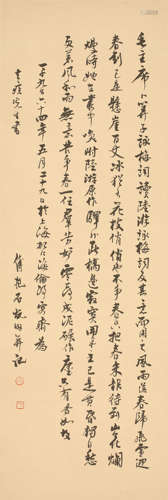 毛主席卜算子詠梅詞讀陸游詠梅詞反其意而用之風雨送春歸飛雪迎
春到已是懸崖丈冰猶有花枝俏俏也不爭春只把春來報待到山花爛
漫時她在叢中笑附陸游原作驛外斷橋邊寂寞開無主已是黃昏獨自愁
更著風和雨無意苦爭春一任群芳妒零落成泥碾作塵只有香如故
一千九百六十四年五月二十九日於上海海倫路齋爲
先生書
并記